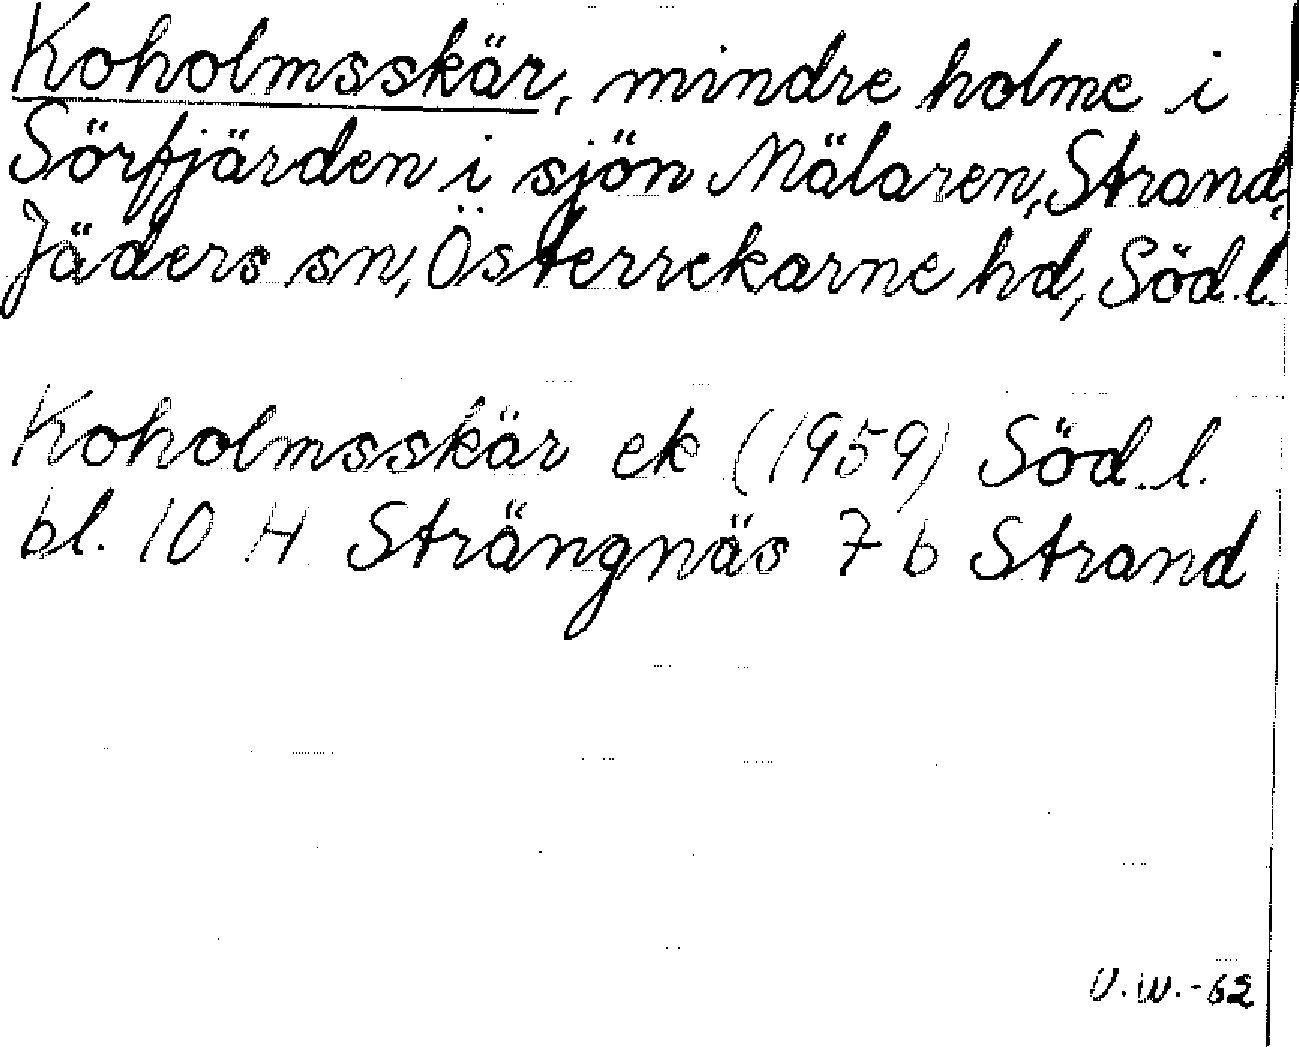 Koholmsskär, mindre holme i
Sörfjärden i sjön Mälaren, Strand,
Jäders sn, Österrekarne hd, Söd.l.
Koholmsskär ek (1959) Söd.l.
bl. 10 H Strängnäs 7 b Strand
U.W.-62